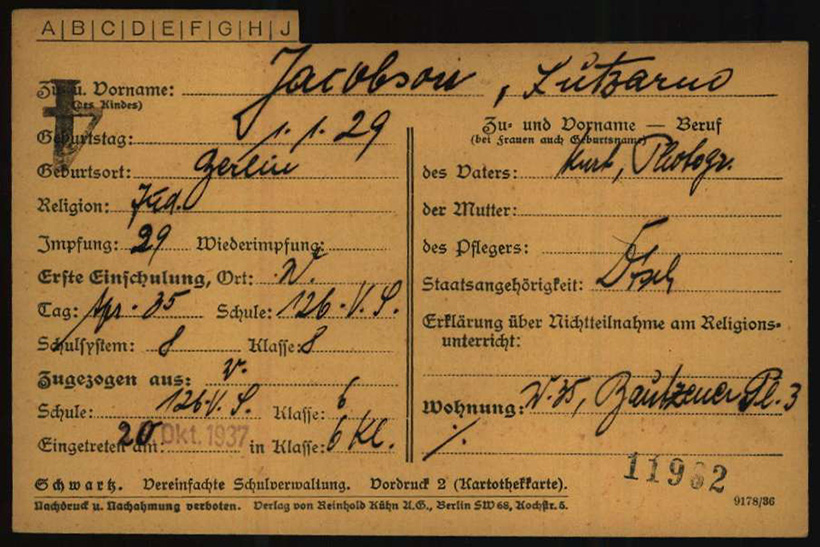 A|B|C|D|E|F|G|H|J
Zu- u. Vorname: Jacobson,
(des Kindes)
Geburtstag: 1. 1. 29
Geburtsort: Berlin
Religion: Jüd.
Impfung: 29 Wiederimpfung:
Erste Einschulung, Ort:
Tag: Apr. 35 Schule: 126. V. S.
Schulsystem: 8 Klasse: 8
Zugezogen aus: v.
Schule: 126. V. S. Klasse: 6
Eingetreten am: 20. Okt. 1937 in Klasse: 6 Kl.
Zu- und Vorname — Beruf
(bei Frauen auch Geburtsname)
des Vaters: Kurt, Photogr.
der Mutter:
des Pflegers:
Staatsangehörigkeit: Dtsch
Erklärung über Nichtteilnahme am Religions-
unterricht:
Wohnung: W. 35, Bautzener Pl. 3
11962
Schwartz. Vereinfachte Schulverwaltung. Vordruck 2 (Kartothekkarte).
Nachdruck u. Nachahmung verboten. Verlag von Reinhold Kühn A.G., Berlin SW 68, Kochstr. 5.
9178/36